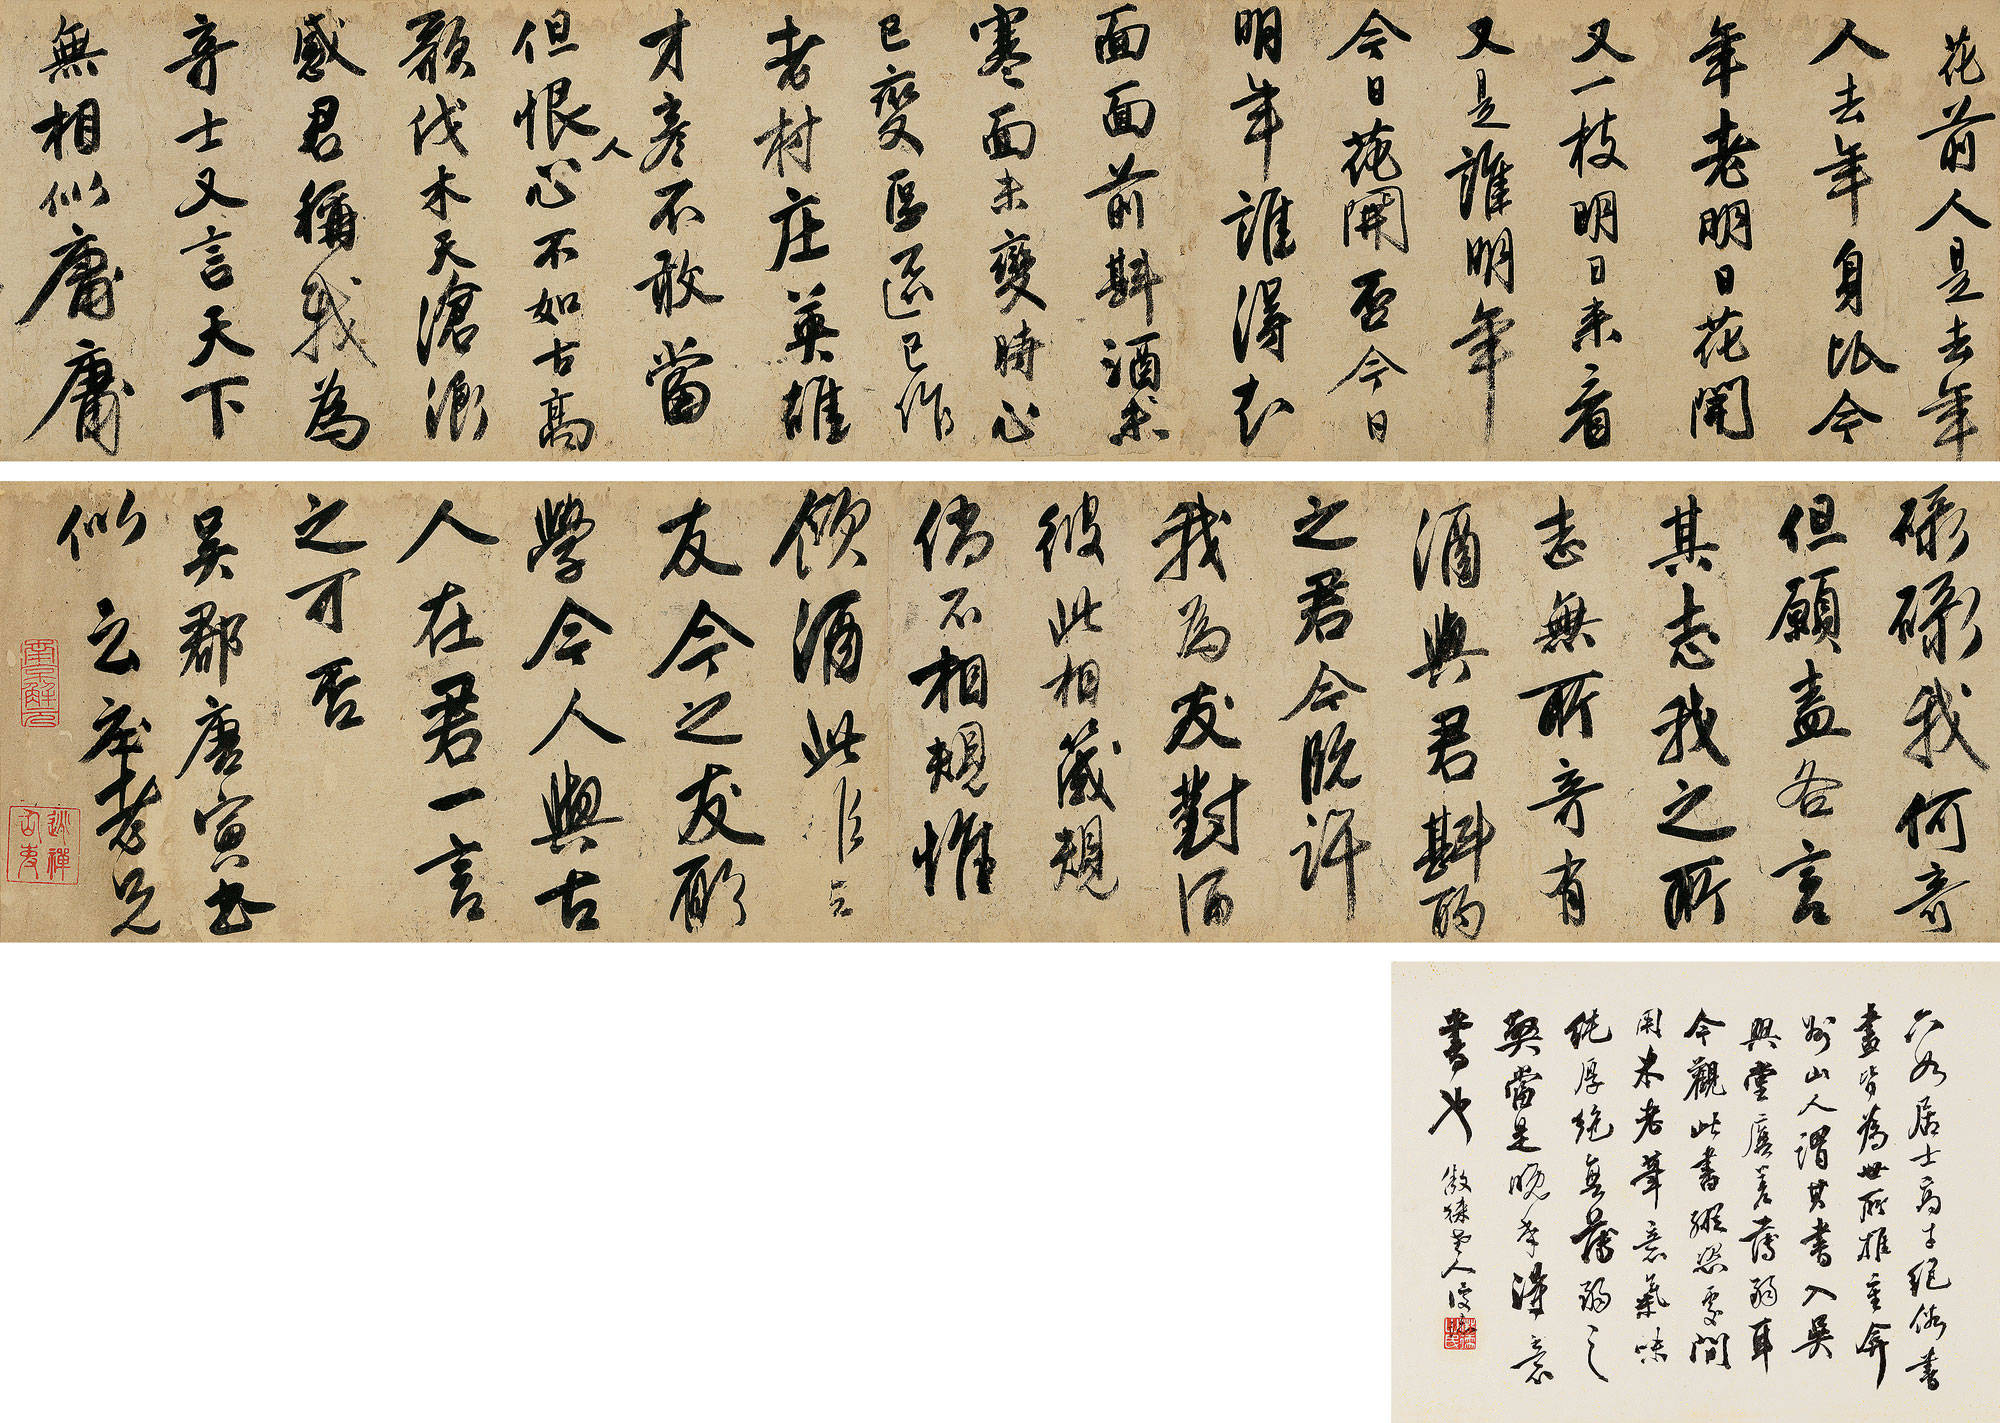 花前人是去年
人去年身比今
年老明日花開
又一枝明日来看
又是誰明年
今日花開否今日
明年誰得知
面面前斟酒未
寒面未變時心
已變區區已作
老村庄英雄
才彥不敢當
但恨人心不如古高
歌伐木天滄浪
感君稱我為
奇士又言天下
無相似庸庸
碌碌我何奇
但願盍各言
其志我之所
志無所奇有
酒與君斟酌
之君今既許
我為友對酒
彼此相箴規
倘不相規惟
飲酒此
友今之友爾
學今人與古
人在君一言
之可否
吳郡唐寅書
似云庄老兄
南京解元
逃禪仙吏
六如居士高才絕俗書
畫皆為世所推重弇
州山人謂其書入吳
興堂廡差薄弱耳
今觀此書縱恣處間
用米老筆意氣味
純厚絕無薄弱之
槩當是晚年得意
書也
傲徠山人